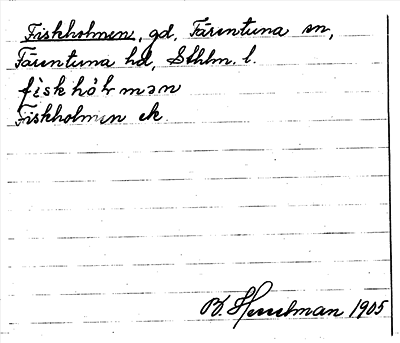 Fiskholmen, gd, Färentuna sn,
Färentuna hd, Sthlm. l.
fiskhòlmən
Fiskholmen ek
B. Hesselman 1905